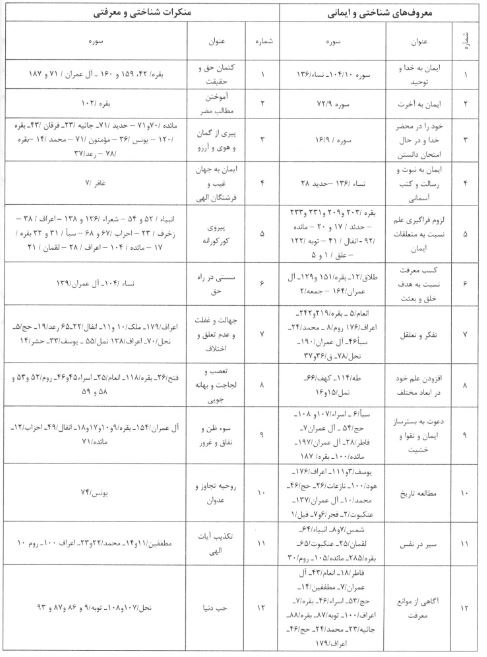 معروف‌های شناختی و ایمانی
منکرات شناختی و معرفتی
شماره
عنوان
سوره
شماره
عنوان
سوره
۱
ایمان به خدا و
توحید
سوره ۱۰۴/۱۰ـ نساء/۱۳۶
۱
کتمان حق و
حقیقت
بقره/ ۴۲، ۱۵۹ و ۱۶۰ ـ آل عمران/ ۷۱ و ۱۸۷
۲
ایمان به آخرت
سوره ۷۲/۹
۲
آموختن
مطالب مضر
بقره/۱۰۲
۳
خود را در محضر
خدا و در حال
امتحان دانستن
سوره / ۱۶/۹
۳
پیری از گمان
و هوی و آرزو
مائده /۷۰و۷۱ – حدید /۷۱ـ جاثیه /۲۳ـ فرقان /۴۳ـ بقره
/۱۲۰– یونس /۳۶ – مؤمنون /۷۱ – محمد /۱۴ –بقره
/۷۸ – رعد/۳۷
۴
ایمان به نبوت و
رسالت و کتب
آسمانی
نساء /۱۳۶ –حدید ۲۸
۴
ایمان به جهان
غیب و
فرشتگان الهی
غافر /۷
۵
لزوم فراگیری علم
نسبت به متعلقات
ایمان
بقره /۲۰۳ و ۲۰۹ و ۲۳۱ و ۲۳۳
– حدید / ۱۷ و ۲۰ – مائده
/۹۲- انفال / ۴۱ – توبه /۱۲۲
– علق / ۱ و ۵
۵
پیروی
کورکورانه
انبیاء / ۵۲ و ۵۴ – شعراء /۱۲۶ و ۱۳۸ – اعراف / ۳۸ –
زخرف / ۲۳ – احزاب /۶۷ و ۶۸ – سبأ / ۳۱ و ۳۲ بقره /
۱۷ – مائده / ۱۰۴ – اعراف / ۲۸ – لقمان / ۳۱
۶
کسب معرفت
نسبت به هدف
خلق و بعثت
طلاق/۱۲ـ بقره/۱۵۱ و ۱۲۹ـ آل
عمران/۱۶۴ – جمعه/۲
۶
سستی در راه
حق
نساء /۱۰۴ـ آل عمران/۱۳۹
۷
تفکر و تعقل
انعام/۵۰ـ بقره/۲۱۹و۲۴۲ـ
اعراف/۱۷۶ روم/۸ـ محمد/۲۴ـ
سبأ/۴۶ـ آل عمران/۱۹۰ـ
نحل/۷۸ـ ق/۳۶و۳۷
۷
جهالت و غفلت
و عدم تعلق و
اختلاف
اعراف/۱۷۹ـ ملک/۱۰ و ۱۱ـ انفال/۲۲ـ۶۵ رعد/۱۹ـ حج/۵ـ
نحل/۷۰ـ اعراف/۱۳۸ نمل/۵۵ ـ یوسف/۳۳ـ حشر/۱۴
۸
افزودن علم خود
در ابعاد مختلف
طه/۱۱۴ـ کهف/۶۶ـ
نمل/۱۵و۱۶
۸
تعصب و
لجاجت و بهانه
جویی
فتح/۲۶ـ بقره/۱۱۸ـ انعام/۲۵ـ اسراء/۴۵و۴۶ـ روم/۵۲ و ۵۳ و
۵۸ و ۵۹
۹
دعوت به بسترساز
ایمان و تقوا و
خشیت
سبأ/۶ ـ اسراء/۱۰۷ و ۱۰۸ـ
حج/۵۴ـ آل عمران/۷ـ
فاطر/۲۸ـ آل عمران/۱۹۷ـ
مائده/۱۰۰ـ بقره/ ۱۸۷
۹
سوء ظن و
نفاق و غرور
آل عمران/۱۵۴ـ بقره/۹و۱۰و۱۷و۱۸ـ انفال/۴۹ـ احزاب/۱۲ـ
مائده/۷۱
۱۰
مطالعه تاریخ
یوسف/۳و۱۱۱ـ اعراف/۱۷۶ـ
هود/۱۰۰ـ نازعات/۲۶ـ حج/۴۶ـ
محمد/۱۰ـ آل عمران/۱۳۷ـ
عنکبوت/۲ـ فجر/۶و۷ـ فیل/۱
۱۰
روحیه تجاوز و
عدوان
یونس/۷۴
۱۱
سیر در نفس
شمس/۷و۸ـ انبیاء/۶۴ـ
لقمان/۲۵ـ عنکبوت/۶۵ـ
بقره/۲۸۵ـ مائده/۱۰۵ـ روم/۳۰
۱۱
تکذیب آیات
الهی
مطففین/۱۱و۱۴ـ محمد/۲۲و۲۳ـ اعراف ۱۰۰ـ روم ۱۰
۱۲
آگاهی از موانع
معرفت
فاطر/۱۸ـ انعام/۴۳ـ آل
عمران/۷ـ مطففین/۱۴ـ
حج/۵۳ـ اسراء/۴۶ـ بقره/۷ـ
اعراف/۱۰۰ـ توبه/۸۷ـ بقره/۸۸ـ
جاثیه/۲۳ـ محمد/۲۴ـ حج/۴۶ـ
اعراف/۱۷۹
۱۲
حب دنیا
نحل/۱۰۷و۱۰۸ـ توبه/۹ و ۸۶ و ۸۷ و ۹۳